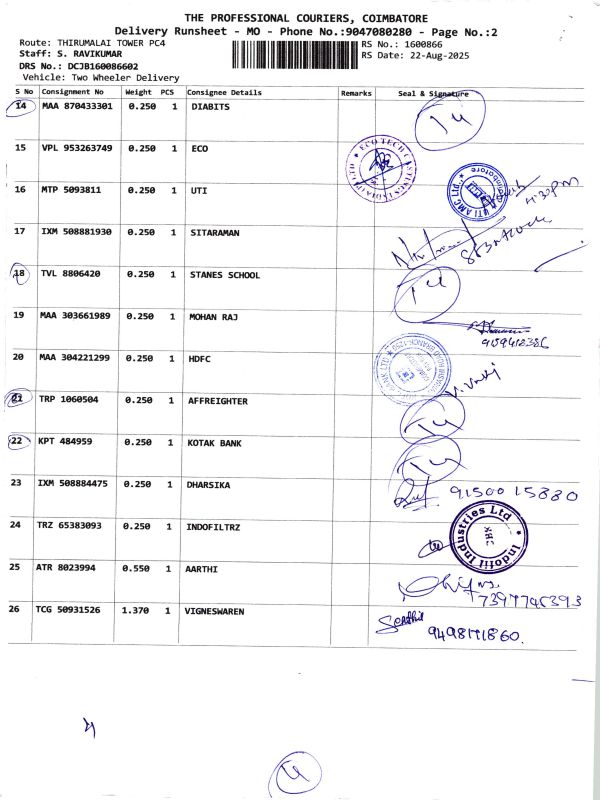 THE PROFESSIONAL COURIERS, COIMBATORE
Delivery Runsheet - MO - Phone No.:9047080280 - Page No.:2
Route: THIRUMALAI TOWER PC4
RS No.: 1600866
Staff: S. RAVIKUMAR
RS Date: 22-Aug-2025
DRS No.: DCJB160086602
Vehicle: Two Wheeler Delivery
S No Consignment No Weight PCS Consignee Details Remarks Seal & Signature
14 MAA 870433301 0.250 1 DIABITS
15 VPL 953263749 0.250 1 ECO
ECO TECH CASTINGS INDIA (P) LTD
16 MTP 5093811 0.250 1 UTI
UTI AMC LTD
Coimbatore
4:30PM
17 IXM 508881930 0.250 1 SITARAMAN
18 TVL 8806420 0.250 1 STANES SCHOOL
19 MAA 303661989 0.250 1 MOHAN RAJ
20 MAA 304221299 0.250 1 HDFC
21 TRP 1060504 0.250 1 AFFREIGHTER
22 KPT 484959 0.250 1 KOTAK BANK
23 IXM 508884475 0.250 1 DHARSIKA
9150015880
24 TRZ 65383093 0.250 1 INDOFILTRZ
Indofil Industries Ltd
CBE
25 ATR 8023994 0.550 1 AARTHI
7397746393
26 TCG 50931526 1.370 1 VIGNESWAREN
Senthil
9498171860.
4
4